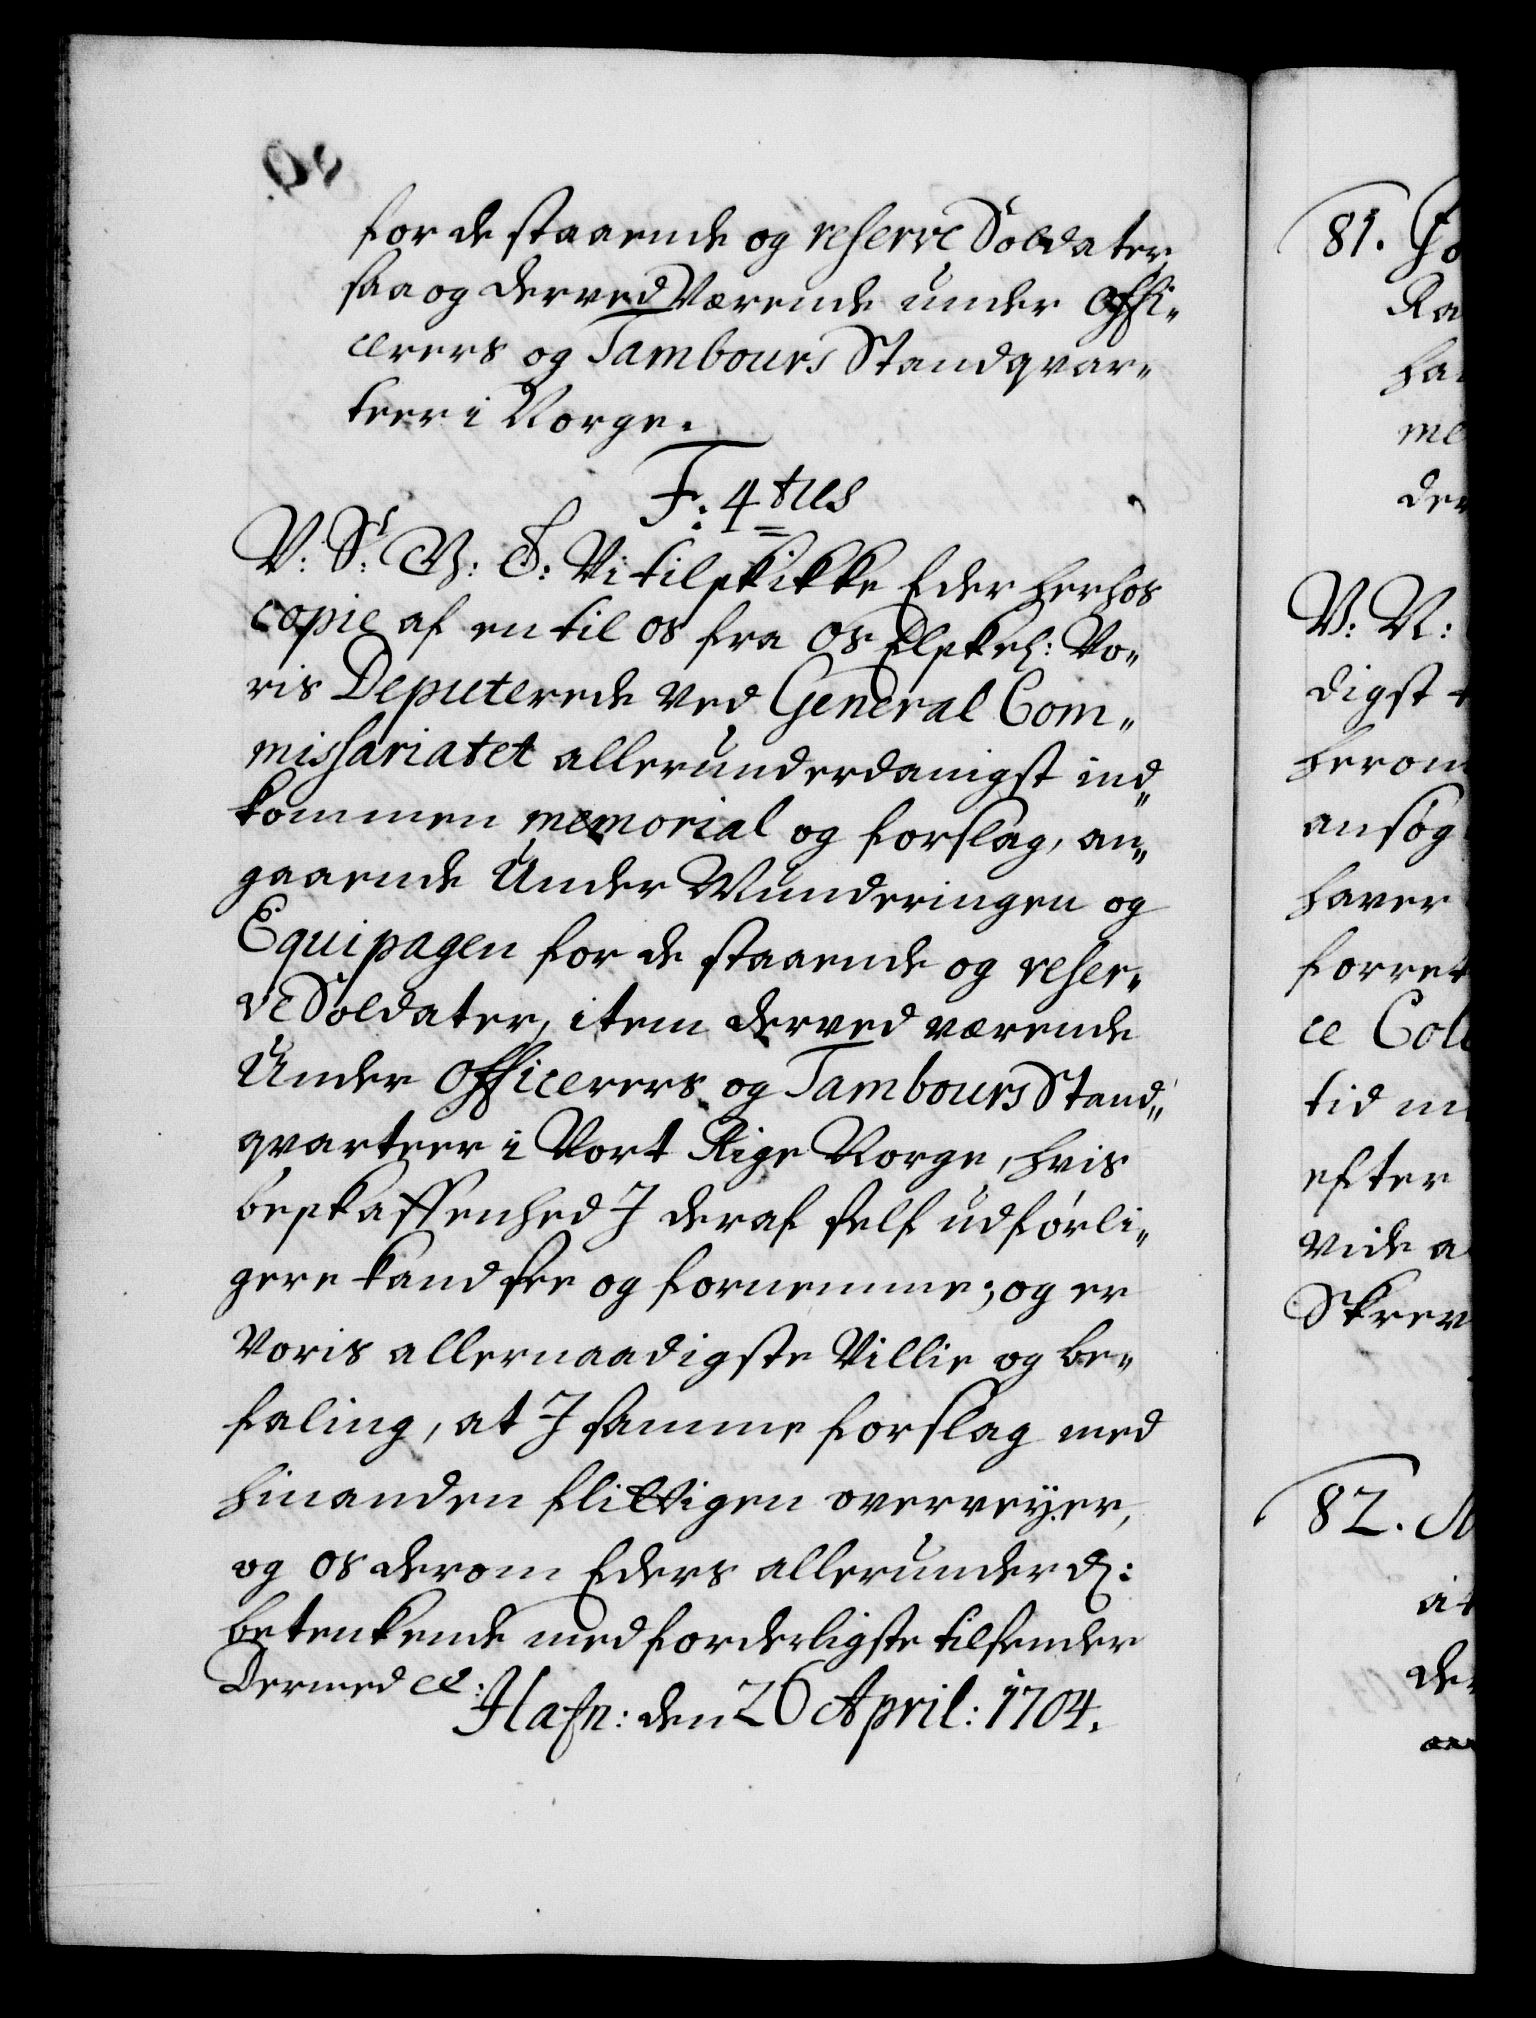 for de staaende og reserve Soldater
saa og derved Værende under Offi„
cerers og Tambours Standqvar„
teer i Norge.
F: 4tus
V: St: V: G: Vi tilskikke Eder herhos
copie af en til os fra Os Elskel: Vo„
ris Deputerede ved General Com„
missariatet allerunderdanigst ind„
kommen memorial og forslag, an„
gaaende Under Munderingen og
Equipagen for de staaende og reser„
ve Soldater, item derved værende
Under Officerers og Tambours Stand„
qvarteer i Vort Rige Norge, hvis
beskaffenhed I deraf self udførli„
gere kand see og fornemme; og er
Voris allernaadigste Villie og be„
faling, at I samme forslag med
hinanden flittigen overveyer,
og os derom Eders allerunderd:
betenkende med forderligste tilsender
Dermed etc:
Hafn: den 26 April: 1704.
81.
Ra
ha
me
der
V: N:
digst
herom
ansøg
haver
forret
ce Coll
tid
efter
vide a
Skrev
82.
at
de